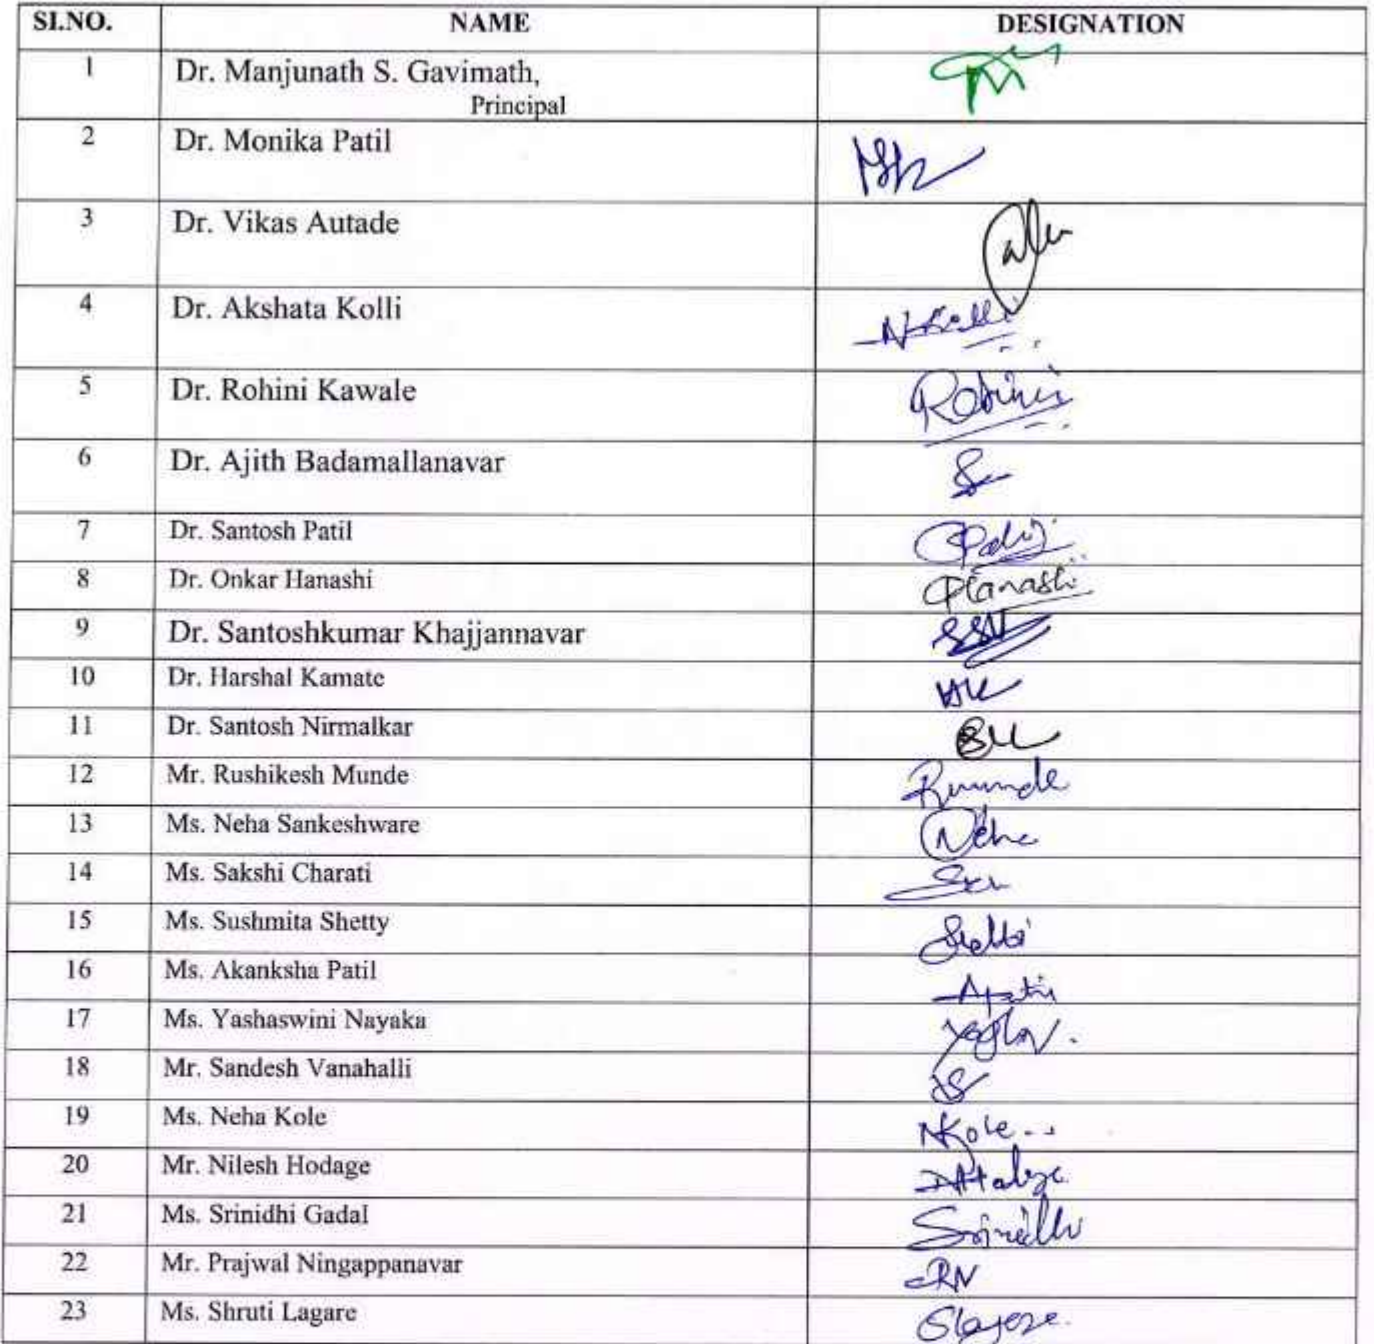 SI.NO. NAME DESIGNATION
1 Dr. Manjunath S. Gavimath,
Principal
2 Dr. Monika Patil
3 Dr. Vikas Autade
4 Dr. Akshata Kolli
5 Dr. Rohini Kawale Rohini
6 Dr. Ajith Badamallanavar
7 Dr. Santosh Patil
8 Dr. Onkar Hanashi OHanashi
9 Dr. Santoshkumar Khajjannavar
10 Dr. Harshal Kamate
11 Dr. Santosh Nirmalkar
12 Mr. Rushikesh Munde Rmunde
13 Ms. Neha Sankeshware Neha
14 Ms. Sakshi Charati
15 Ms. Sushmita Shetty
16 Ms. Akanksha Patil
17 Ms. Yashaswini Nayaka
18 Mr. Sandesh Vanahalli
19 Ms. Neha Kole NKole
20 Mr. Nilesh Hodage
21 Ms. Srinidhi Gadal Srinidhi
22 Mr. Prajwal Ningappanavar
23 Ms. Shruti Lagare